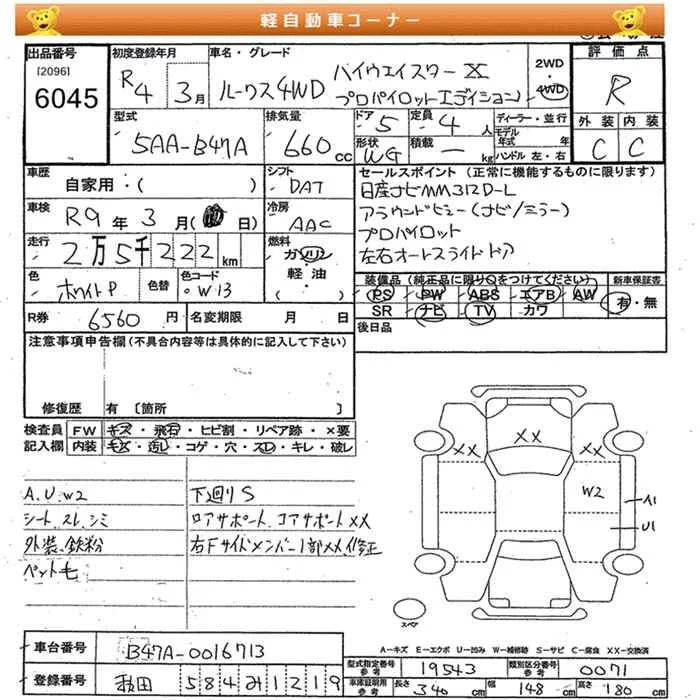 軽自動車コーナー
出品番号
[2096]
6045
初度登録年月
R4 3月
車名・グレード
ルークス4WD
ハイウェイスターX
プロパイロットエディション
2WD・4WD
評価点
R
外装 内装
C C
型式
5AA-B47A
排気量
660cc
ドア
5
定員
4人
形状
WG
積載
ー kg
ディーラー・並行
モデル年式 年
ハンドル 左・右
車歴
自家用・( )
シフト
DAT
車検
R9年3月( 日)
冷房
AAC
走行
2万5千222km
燃料
ガソリン
軽油
( )
色
ホワイトP
色替
色コード
W13
R券 6560円
名変期限 月 日
セールスポイント(正常に機能するものに限ります)
日産ナビMM312D-L
アラウンドビュー(ナビ/ミラー)
プロパイロット
左右オートスライドドア
装備品(純正品に限り○をつけてください)
PS・PW・ABS・エアB・AW
SR ナビ・TV・カワ
新車保証書
有・無
後日品
注意事項申告欄(不具合内容等は具体的に記入して下さい)
修復歴 有〔箇所 〕
検査員記入欄
FW キズ・飛石・ヒビ割・リペア跡・×要
内装 キズ・汚し・コゲ・穴・スレ・キレ・破レ
A.U.W2
シート.スレ.シミ
外装、鉄粉
ペット毛
下廻りS
ロアサポート、コアサポートXX
右Fサイドメンバー1部XX修正
XX
XX
XX
W2
A1
U1
スペア
A-キズ E-エクボ U-凹み W-補修跡 S-サビ C-腐食 XX-交換済
車台番号
B47A-0016713
登録番号
584み1219
型式指定番号
参考
19543
類別区分番号
参考
0071
車庫証明用
参考
長さ 340cm
幅 148cm
高さ 180cm